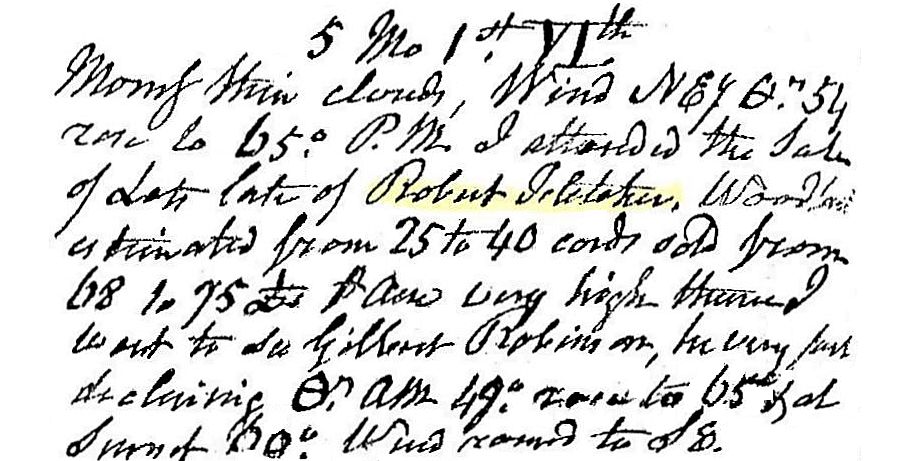 5 Mo 1st. VIth
Morng thin clouds, Wind NEy 54
rose to 65° P.M. I attended the Sale
of Lots late of Robert Fletcher, Woodland
estimated from 25 to 40 cords sold from
68 to 75 Acre very high thence I
went to see Gilbert Robinson, he very fast
declining AM 49° rose to 65° & at
Sunset 60° Wind round to SE.